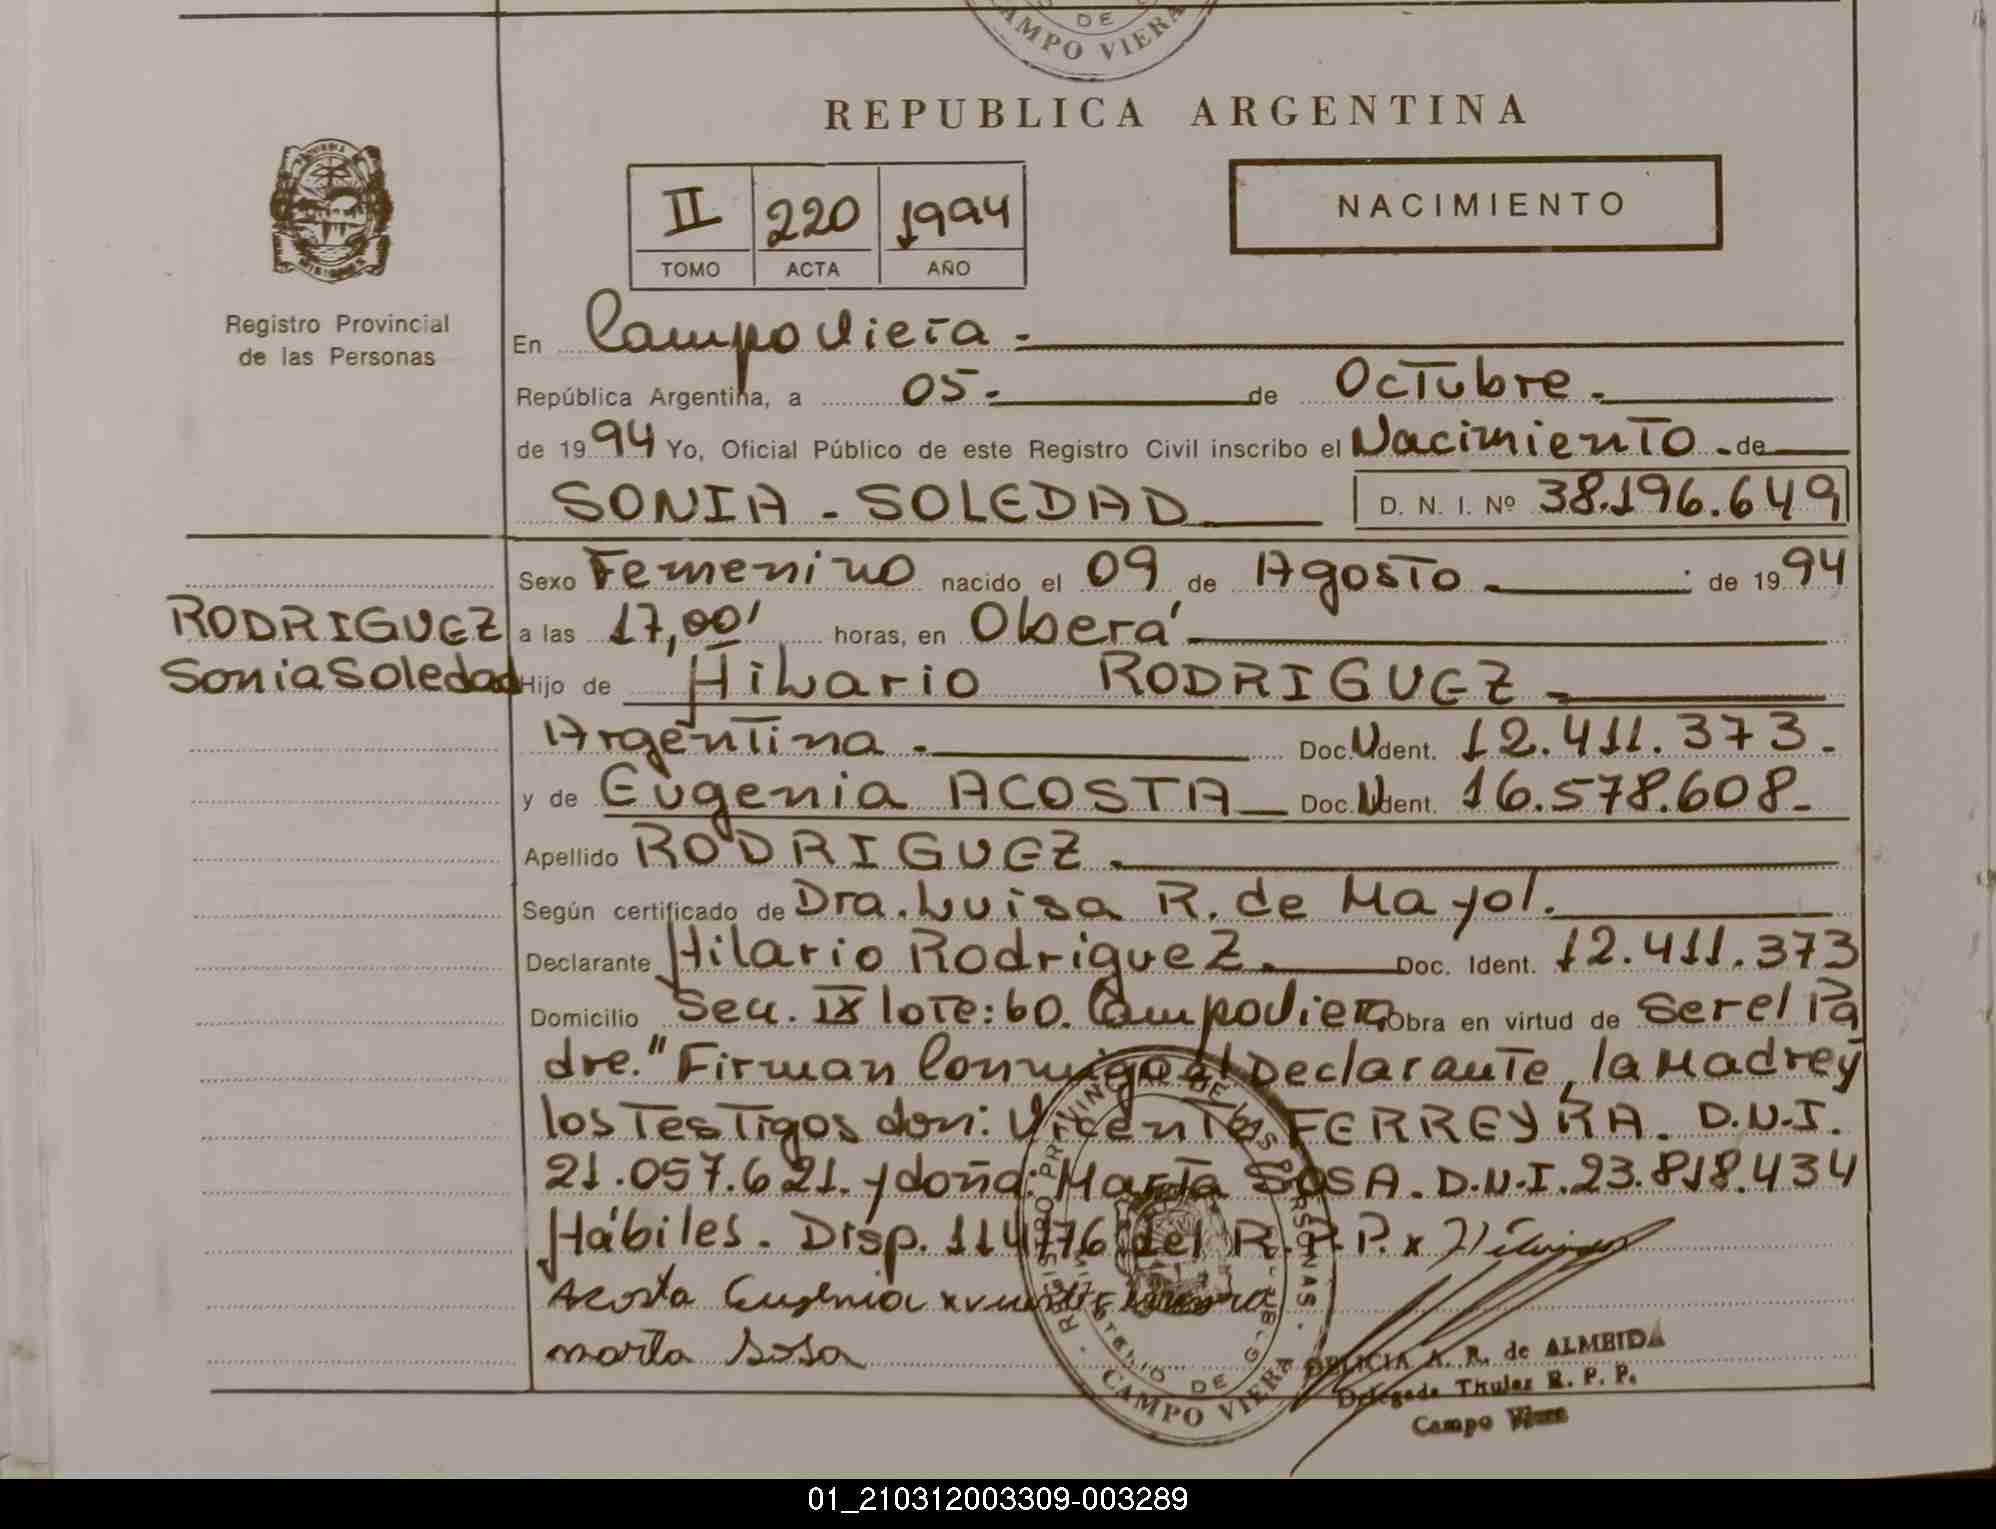 DE
CAMPO VIERA
REPUBLICA ARGENTINA
II 220 1994
TOMO ACTA AÑO
NACIMIENTO
Registro Provincial
de las Personas
En Campo Viera.-
República Argentina, a 05.- de Octubre.-
de 1994 Yo, Oficial Público de este Registro Civil inscribo el Nacimiento.- de
SONIA - SOLEDAD D. N. I. Nº 38.196.649
Sexo Femenino nacido el 09 de Agosto.- de 1994
RODRIGUEZ
Sonia Soledad
a las 17,00' horas, en Oberá.-
Hijo de Hilario RODRIGUEZ.-
Argentina.- Doc. U Ident. 12.411.373.-
y de Eugenia ACOSTA Doc. U Ident. 16.578.608.-
Apellido RODRIGUEZ.-
Según certificado de Dra. Luisa R. de Mayol.
Declarante Hilario Rodriguez. Doc. Ident. 12.411.373
Domicilio Secc. IX lote: 60. Campo Viera Obra en virtud de Ser el Pa
dre." Firman Conmigo el Declarante, la Madre y
los Testigos don: Vicente FERREYRA. D.N.I.
21.057.621. y doña: Marta SOSA. D.N.I. 23.818.434
Hábiles. Disp. 114/76 del R.P.P. x
Acosta Eugenia x
marta Sosa
REGISTRO PROVINCIAL DE LAS PERSONAS
MINISTERIO DE GOB
CAMPO VIERA
A. R. de ALMEIDA
Delegada Titular R. P. P.
Campo Viera
01_210312003309-003289